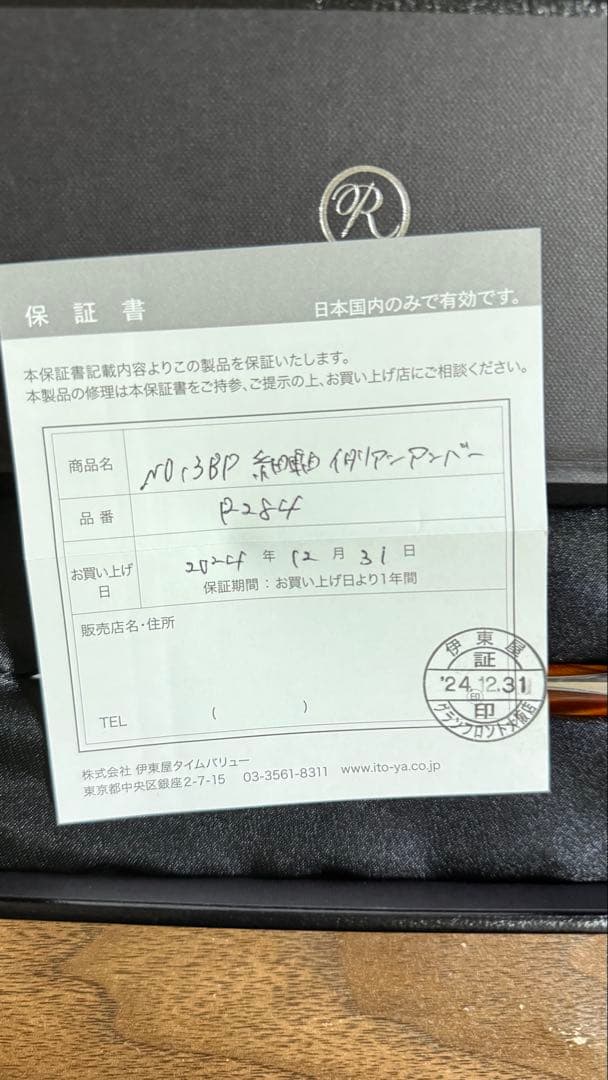 R
保証書
日本国内のみで有効です。
本保証書記載内容よりこの製品を保証いたします。
本製品の修理は本保証書をご持参、ご提示の上、お買い上げ店にご相談ください。
商品名 NO.3BP 細軸 イタリアンアンバー
品番 R284
お買い上げ日 2024年12月31日
保証期間：お買い上げ日より1年間
販売店名・住所
TEL ( )
伊東屋
証
'24.12.31
印
印
グランフロント大阪店
株式会社 伊東屋タイムバリュー
東京都中央区銀座2-7-15 03-3561-8311 www.ito-ya.co.jp